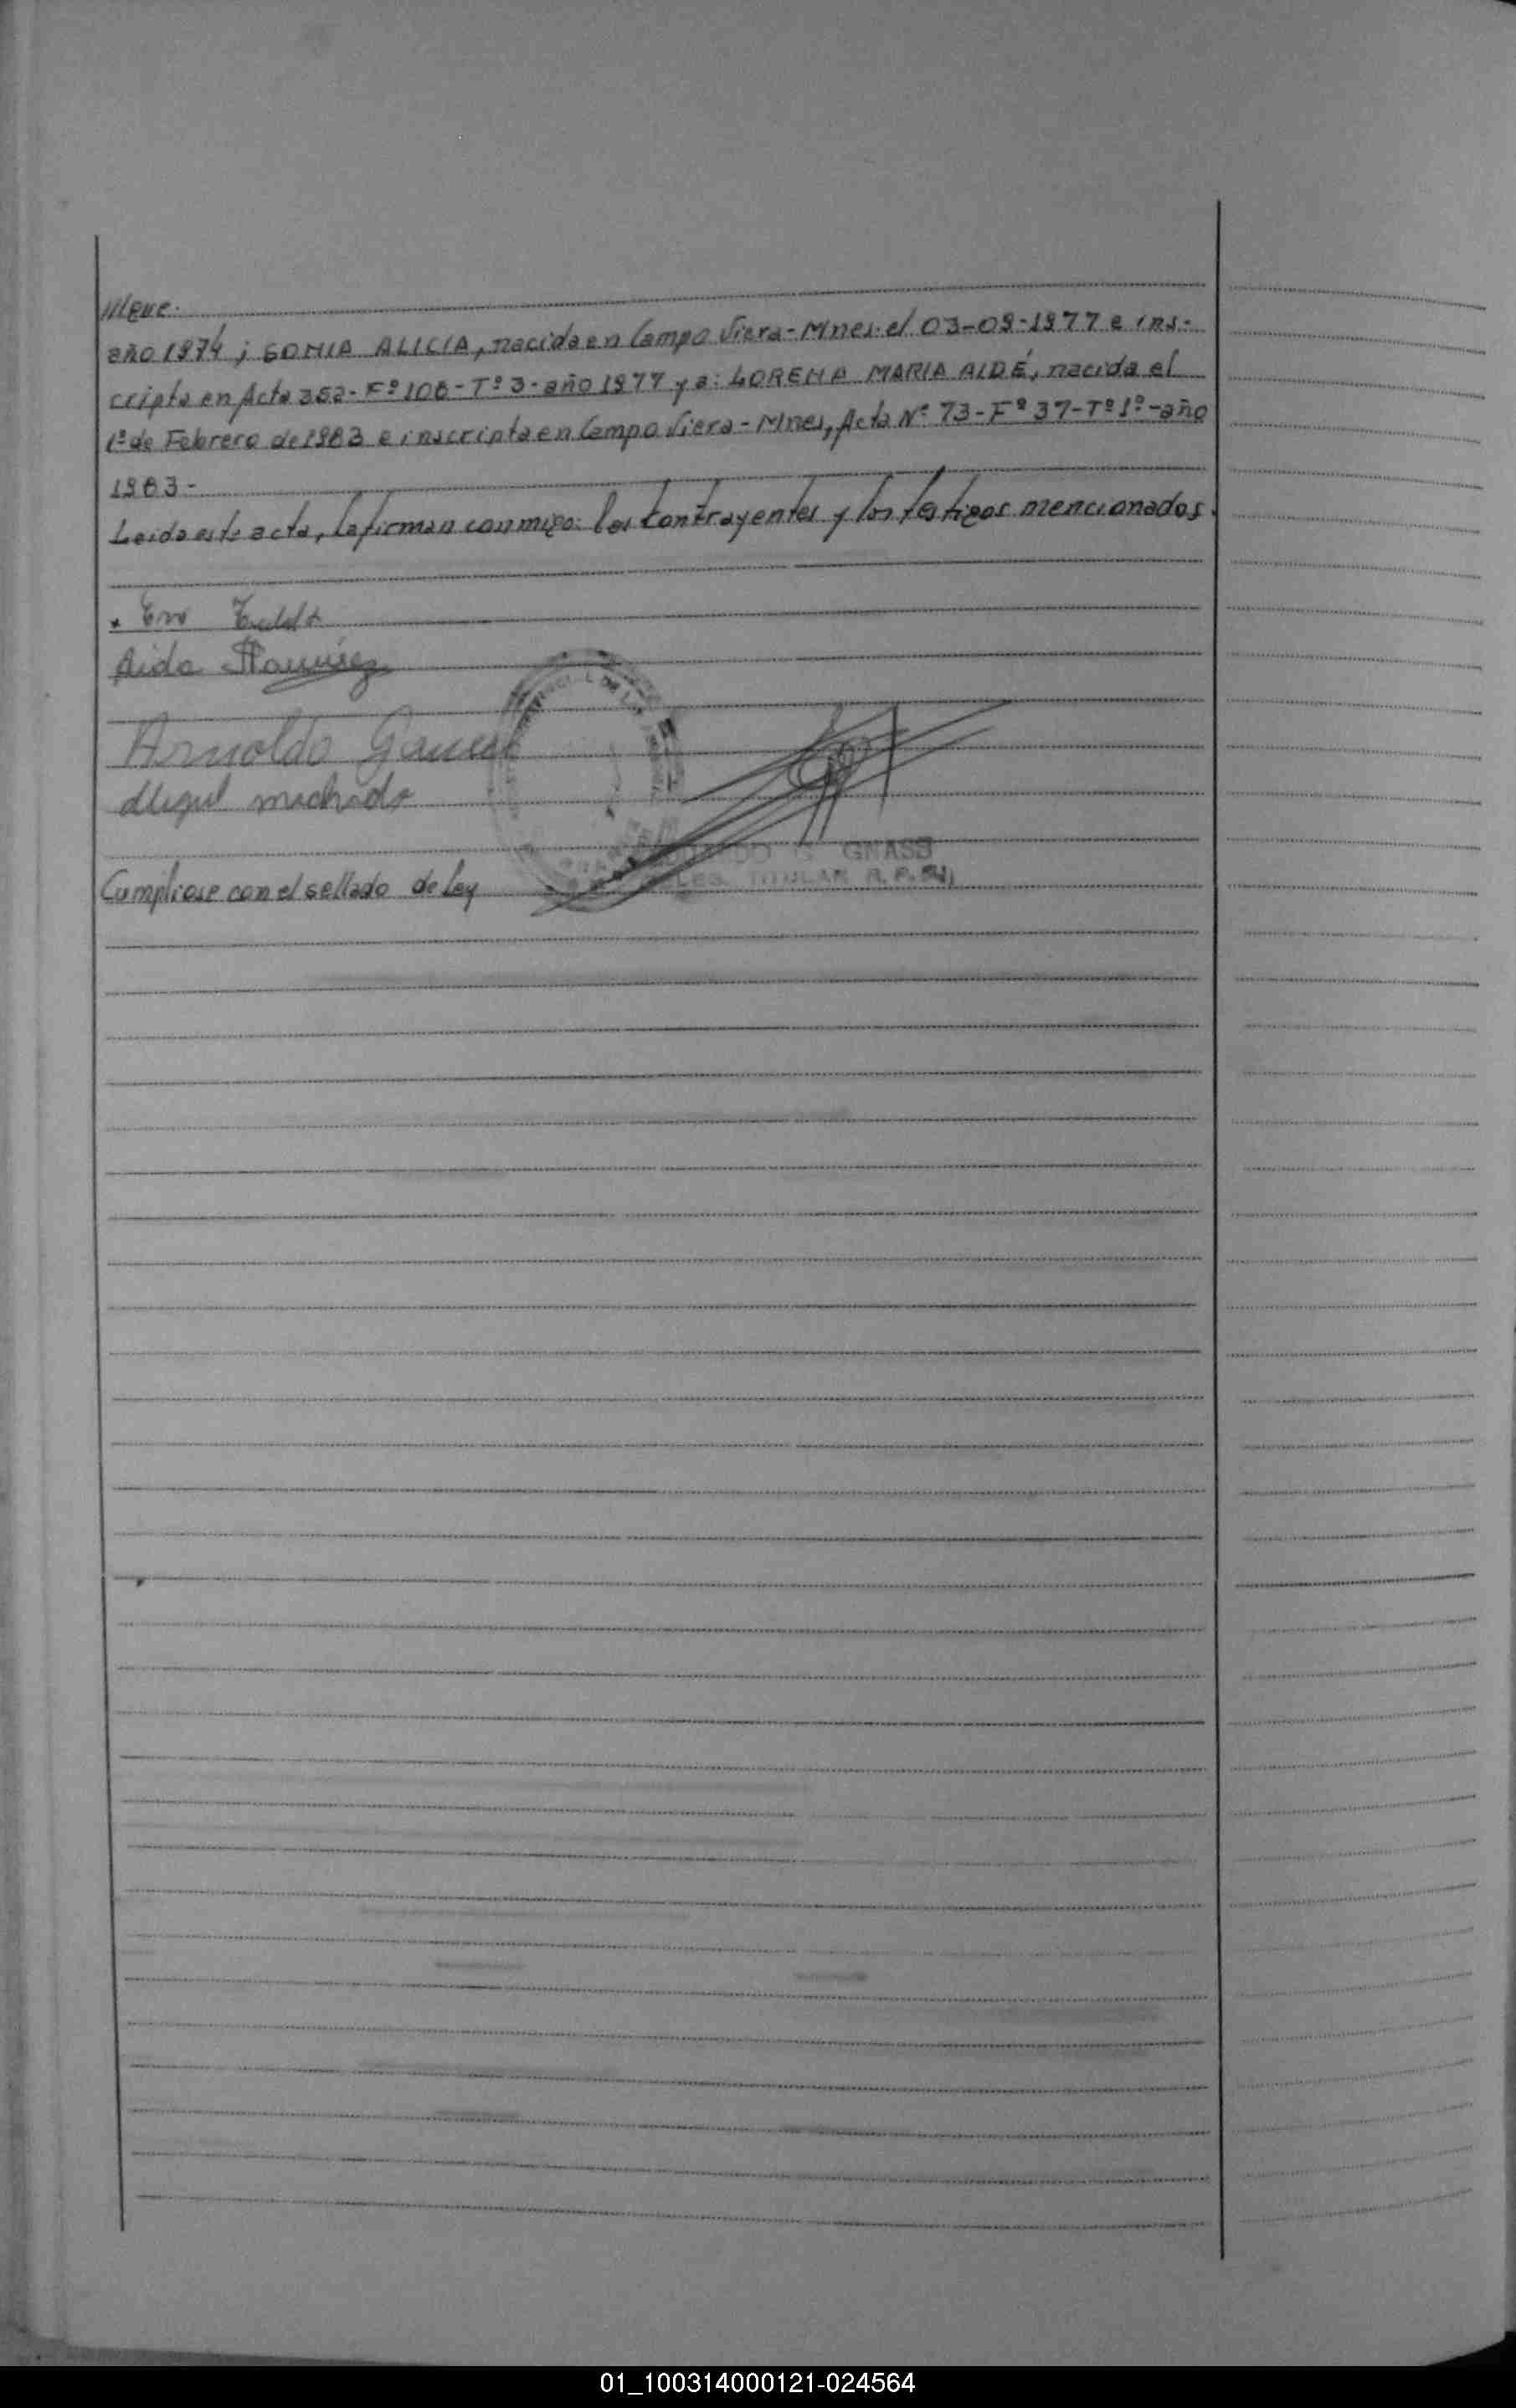 ///eve.
año 1974; SONIA ALICIA, nacida en Campo Viera - Mnes. el 03-09-1977 e ins-
cripta en Acta 352 - Fº 108 - Tº 3 - año 1977 y a: LORENA MARIA AIDÉ, nacida el
1º de Febrero de 1983 e inscripta en Campo Viera - Mnes, Acta Nº 73 - Fº 37 - Tº 1º - año
1983 -
Leida este acta, la firman conmigo: los contrayentes y los testigos mencionados.
Aida Ramirez
Arnoldo
Miguel machado
G. GNASS
TITULAR R.P.
Cumpliose con el sellado de Ley
01_100314000121-024564